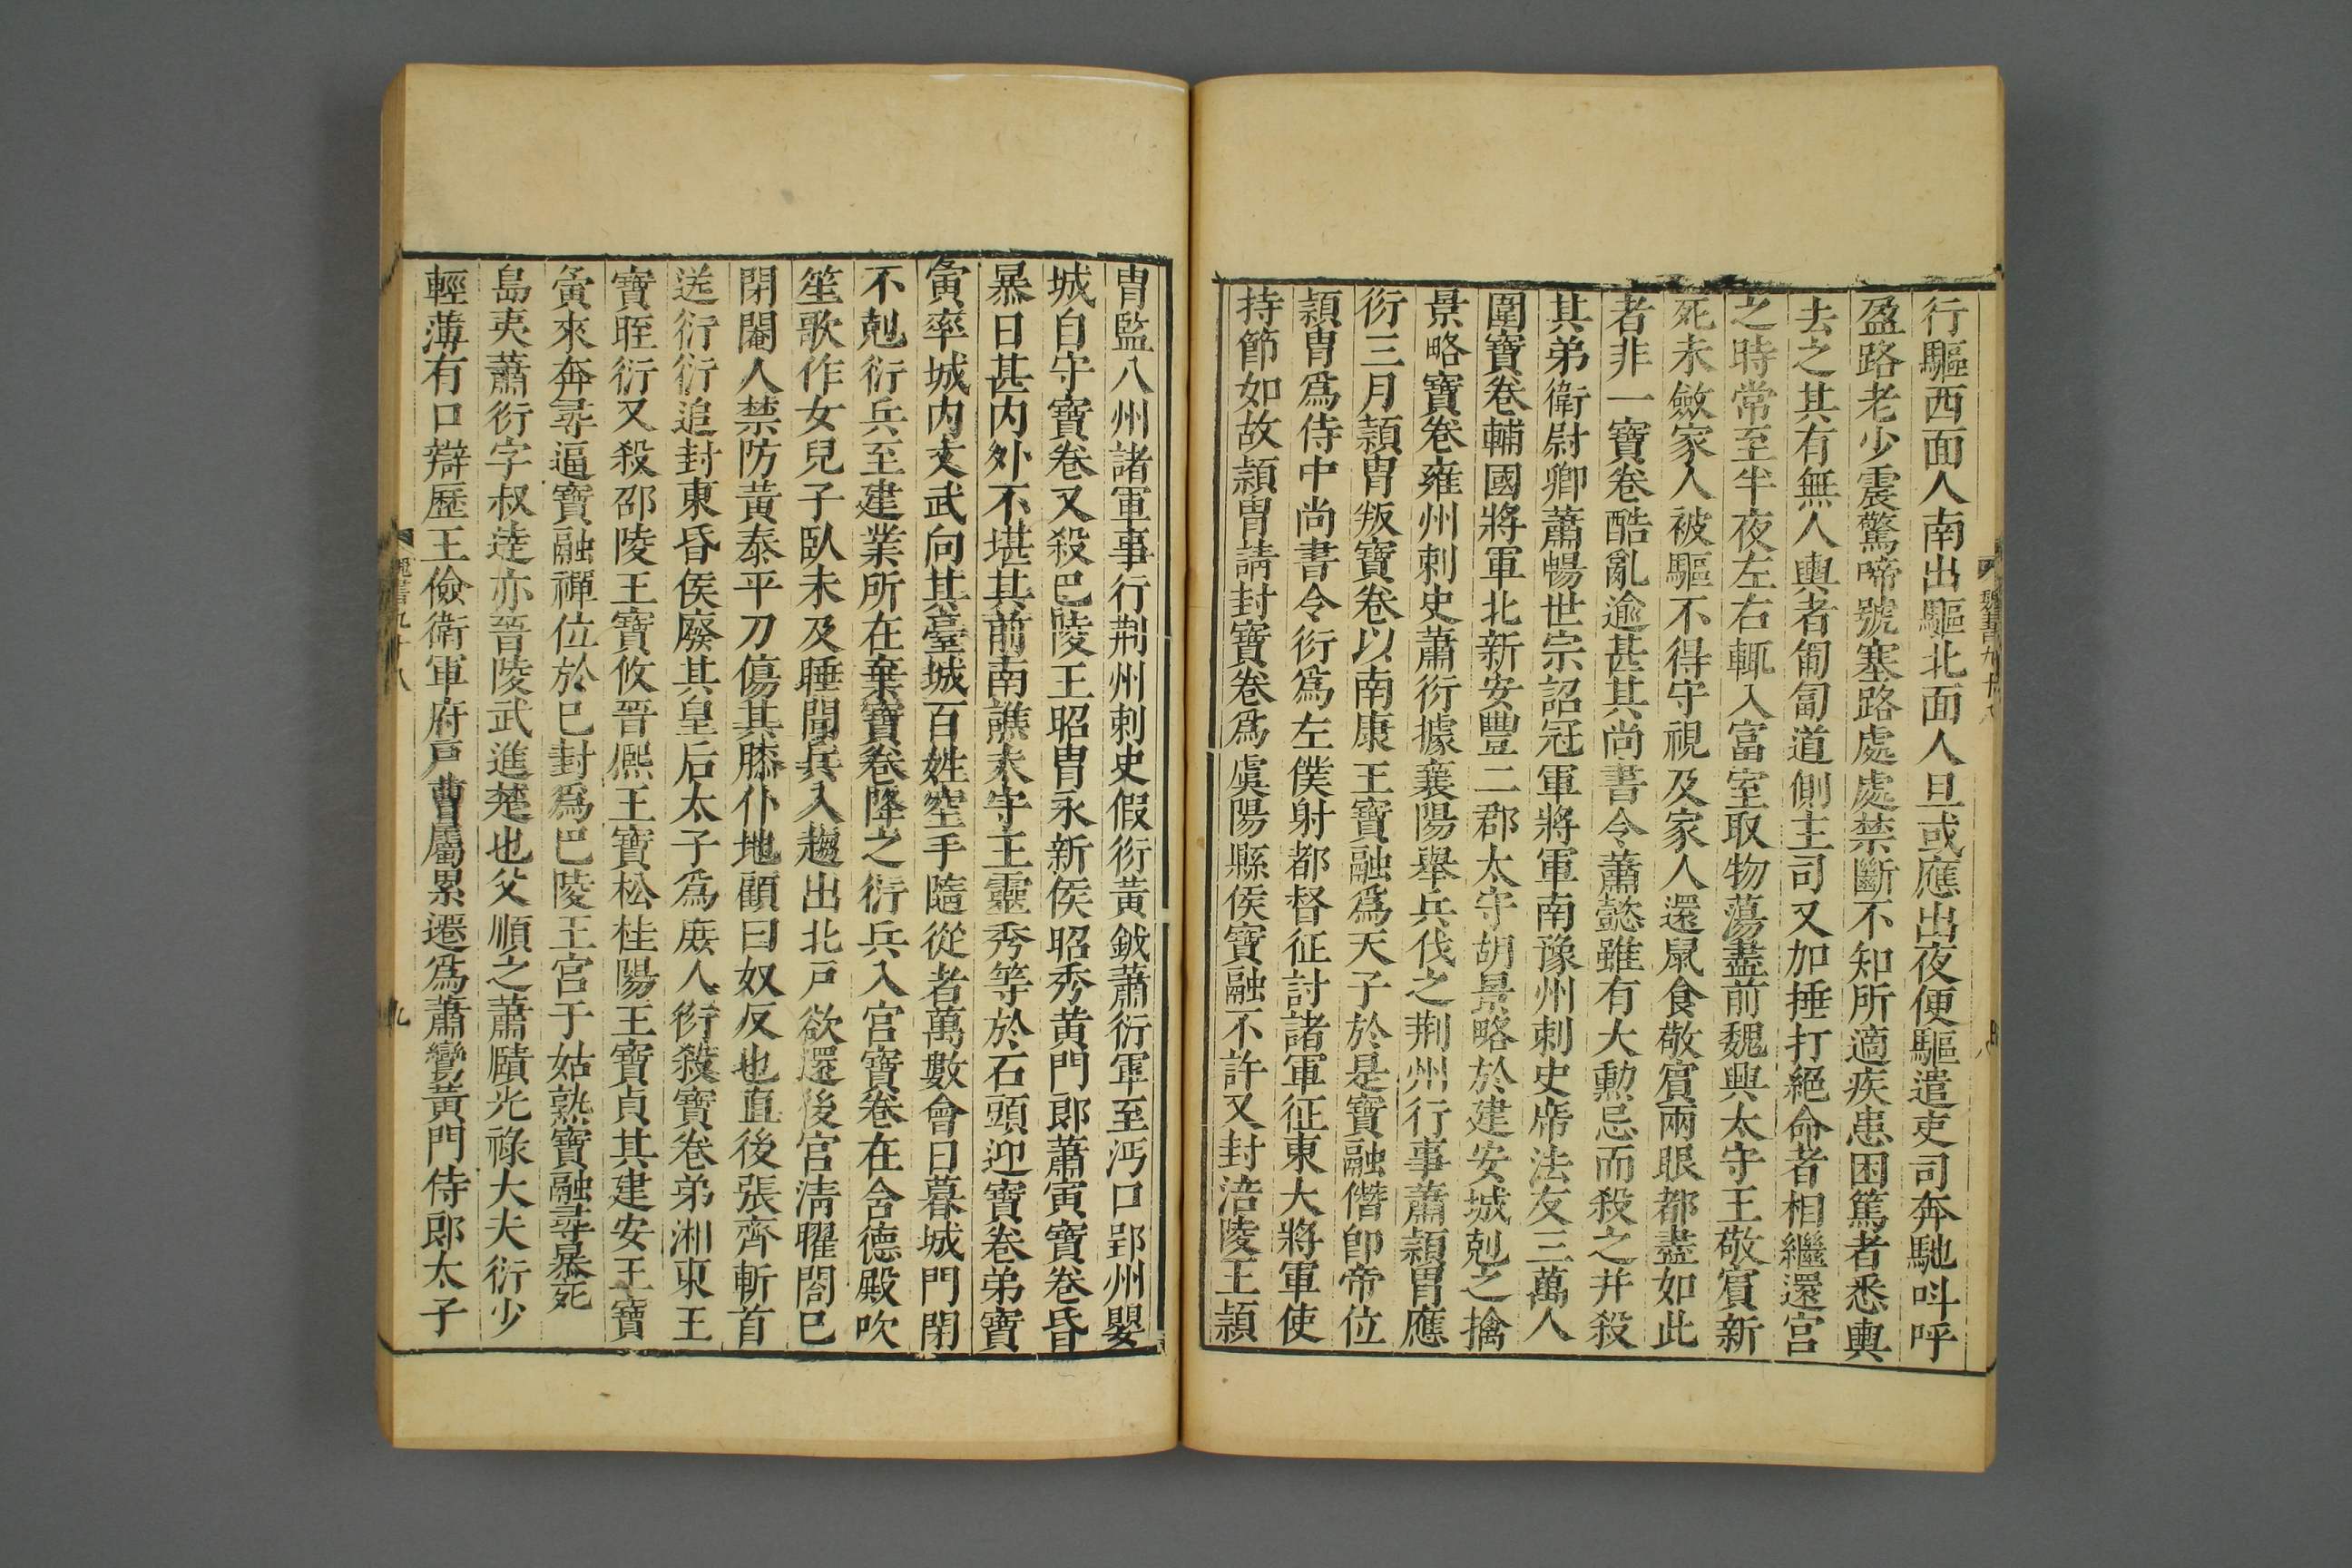 行驅西面人南出驅北面人旦或應出夜便驅遣吏司奔馳叫呼
盈路老少震驚啼號塞路處處禁斷不知所適疾患困篤者悉輿
去之其有無人輿者匍匐道側主司又加捶打絕命者相繼還宮
之時常至半夜左右輒入富室取物蕩盡前魏興太守王敬賓新
死未斂家人被驅不得守視及家人還鼠食敬賓兩眼都盡如此
者非一寶卷酷亂逾甚其尚書令蕭懿雖有大勳忌而殺之并殺
其弟衛尉卿蕭暢世宗詔冠軍將軍南豫州刺史席法友三萬人
圍寶卷輔國將軍北新安豐二郡太守胡景略於建安城剋之擒
景略寶卷雍州刺史蕭衍據襄陽舉兵伐之荆州行事蕭穎胄應
衍三月穎胄叛寶卷以南康王寶融爲天子於是寶融僭卽帝位
穎胄爲侍中尚書令衍爲左僕射都督征討諸軍征東大將軍使
持節如故穎胄請封寶卷爲虞陽縣侯寶融不許又封涪陵王穎
胄監八州諸軍事行荆州刺史假衍黃鉞蕭衍軍至沔口郢州嬰
城自守寶卷又殺巴陵王昭胄永新侯昭秀黃門郎蕭寅寶卷昏
暴日甚内外不堪其前南譙太守王靈秀等於石頭迎寶卷弟寶
夤率城内文武向其臺城百姓空手隨從者萬數會日暮城門閉
不剋衍兵至建業所在棄寶卷降之衍兵入宮寶卷在含德殿吹
笙歌作女兒子臥未及睡聞兵入趨出北戸欲還後宮清曜閤已
閉閹人禁防黃泰平刀傷其膝仆地顧曰奴反也直後張齊斬首
送衍衍追封東昏侯廢其皇后太子爲庶人衍殺寶卷弟湘東王
寶晊衍又殺邵陵王寶攸晉熈王寶松桂陽王寶貞其建安王寶
夤來奔尋逼寶融禪位於己封爲巴陵王宮于姑熟寶融尋暴死
島夷蕭衍字叔達亦晉陵武進楚也父順之蕭賾光祿大夫衍少
輕薄有口辯歷王儉衛軍府戸曹屬累遷爲蕭鸞黃門侍郎太子
魏書九十八
九